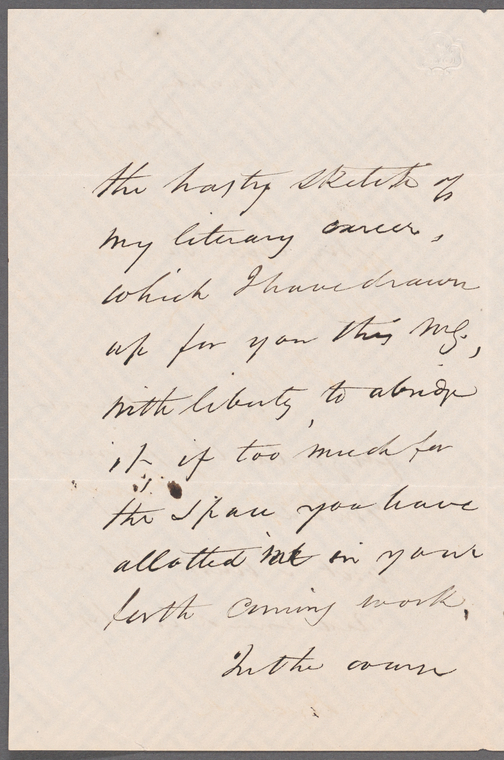 the hasty sketch of
my literary career,
which I have drawn
up for you this Mg,
with liberty, to abridge
it, if too much for
the space you have
allotted me in your
forth coming work.
In the course